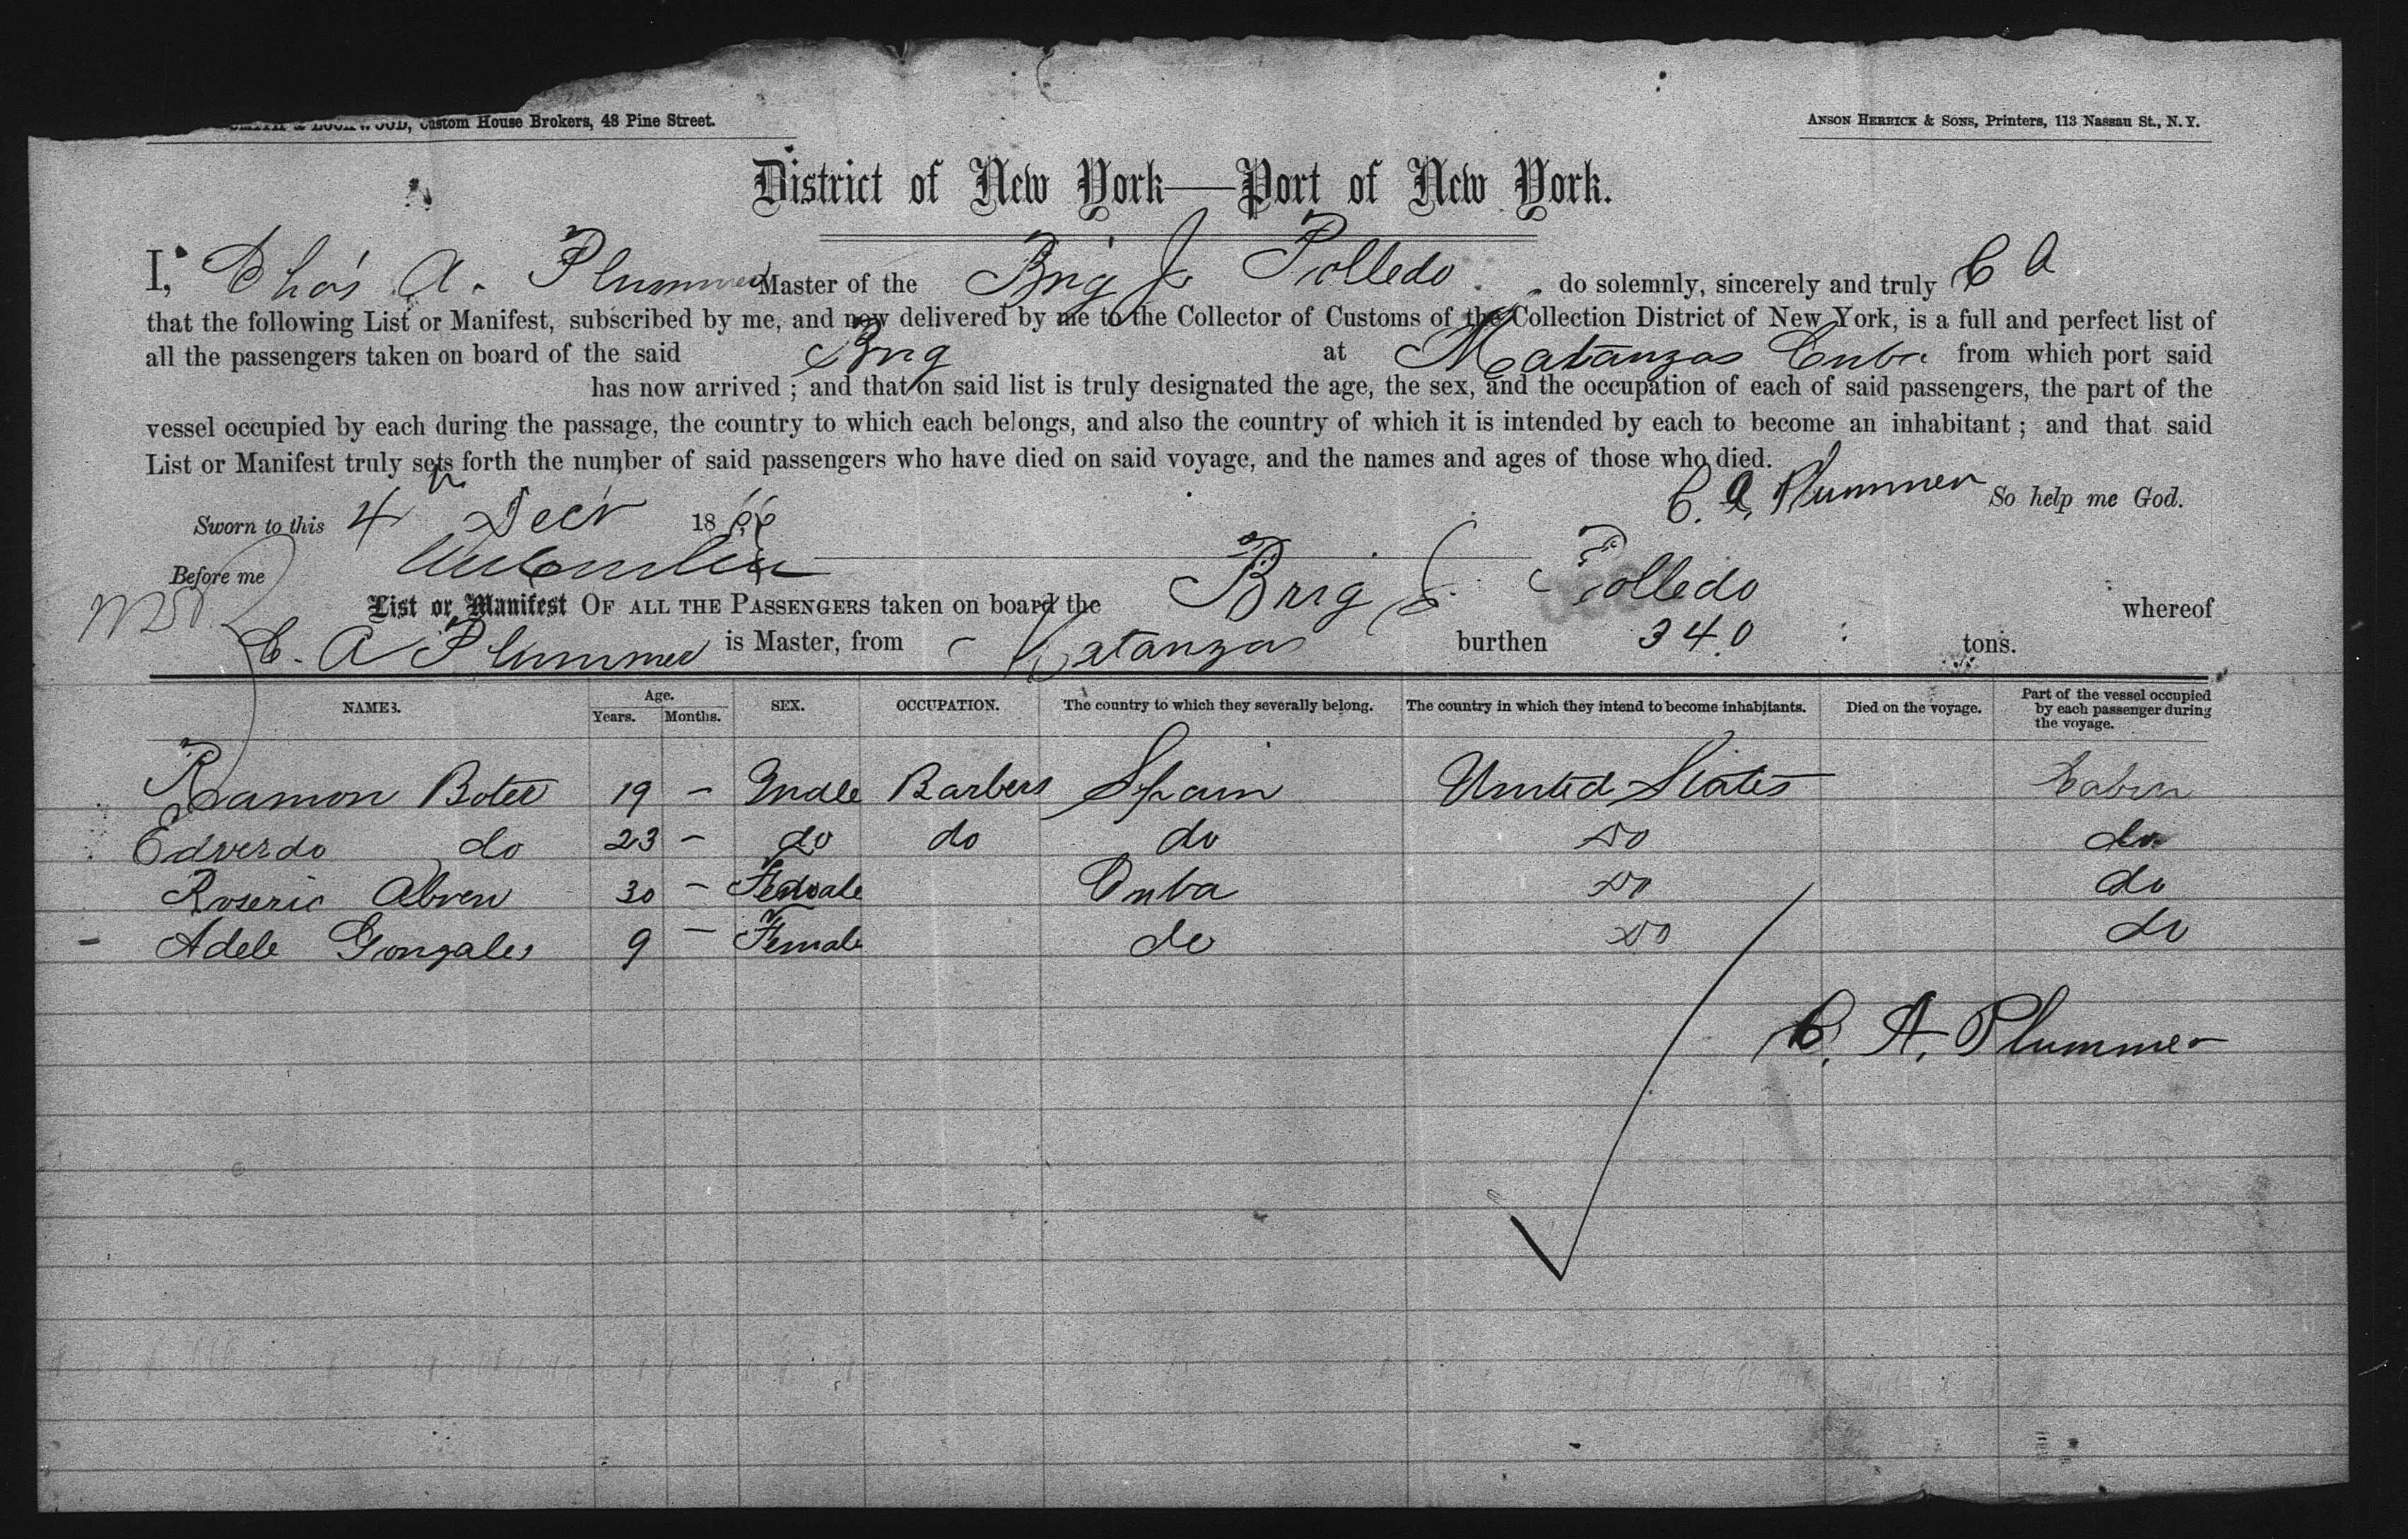 Custom House Brokers, 48 Pine Street.
ANSON HERRICK & SONS, Printers, 113 Nassau St., N. Y.
District of New York—Port of New York.
I, Chas A. Plummer Master of the Brig J. Polledo do solemnly, sincerely and truly C A
that the following List or Manifest, subscribed by me, and now delivered by me to the Collector of Customs of the Collection District of New York, is a full and perfect list of
all the passengers taken on board of the said Brig at Matanzas Cuba from which port said
has now arrived ; and that on said list is truly designated the age, the sex, and the occupation of each of said passengers, the part of the
vessel occupied by each during the passage, the country to which each belongs, and also the country of which it is intended by each to become an inhabitant ; and that said
List or Manifest truly sets forth the number of said passengers who have died on said voyage, and the names and ages of those who died.
C. A. Plummer So help me God.
Sworn to this 4 Decr 18
Before me
List or Manifest OF ALL THE PASSENGERS taken on board the Brig J. Polledo whereof
C. A Plummer is Master, from Matanzas burthen 340 tons.
NAMES. Age. Years. Months. SEX. OCCUPATION. The country to which they severally belong. The country in which they intend to become inhabitants. Died on the voyage. Part of the vessel occupied by each passenger during the voyage.
Ramon Botet 19 – Male Barbers Spain United States Cabin
Edverdo do 23 – do do do do do
Roseric Abreu 30 – Female Cuba do do
Adele Gonzales 9 – Female do do do
C. A. Plummer